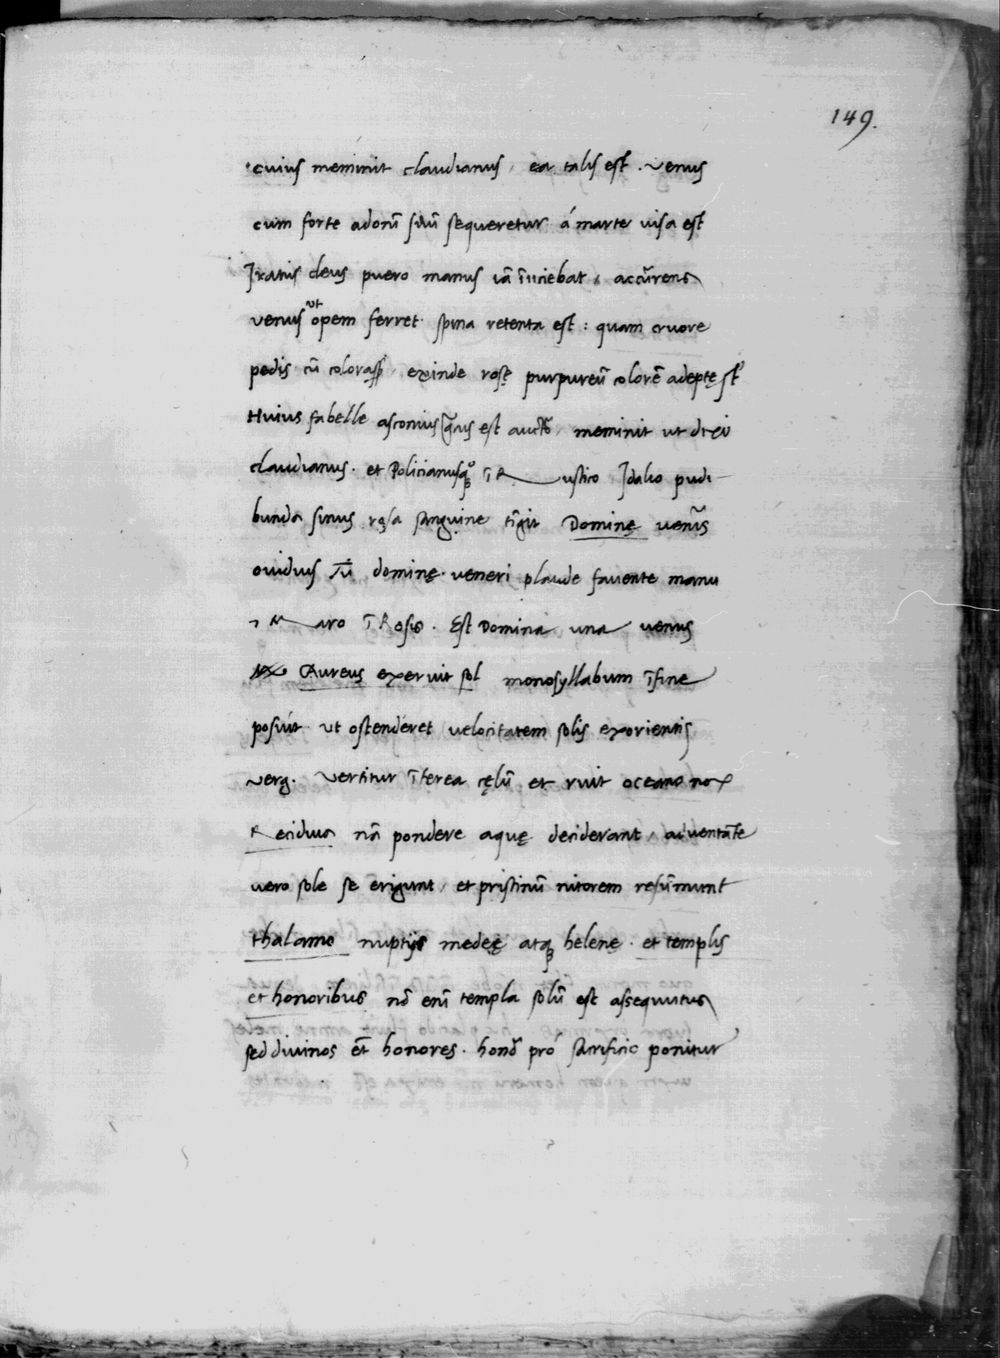 149.
cuius meminit claudianus, ea talis est. venus
cum forte adonẽ suũ sequeretur á marte visa est
Iratus deus puero manus iã ĩiiciebat, accũrens
venus ut opem ferret spina retenta est: quam cruore
pedis cũ colorasset, exinde rosę purpureũ colorẽ adeptę st̃
Huius fabelle asconius est auctor, meminit ut dixi
claudianus. et Policianusq̨ ĩ Rustico Idalio pudi
bunda sinus rosa sanguine tĩgit Dominę venẽris
ouidius Tũ dominę veneri plaude favente manu
Maro ĩ Rosis. Est Domina una venus
Aureus exeruit sol monosyllabum ĩ fine
posuit ut ostenderet velocitatem solis exorientis
verg. Vertitur ĩterea cęlũ et ruit oceano nox
Recidua nã pondere aquę deciderant, adventãte
vero sole se erigunt, et pristinũ nitorem resũmunt
thalamo nuptijs medeę atq̨ helenę. et templis
et honoribus nõ enĩ templa solũ est assequutus
sed divinos et̃ honores. honõ prõ sacrificio ponitur